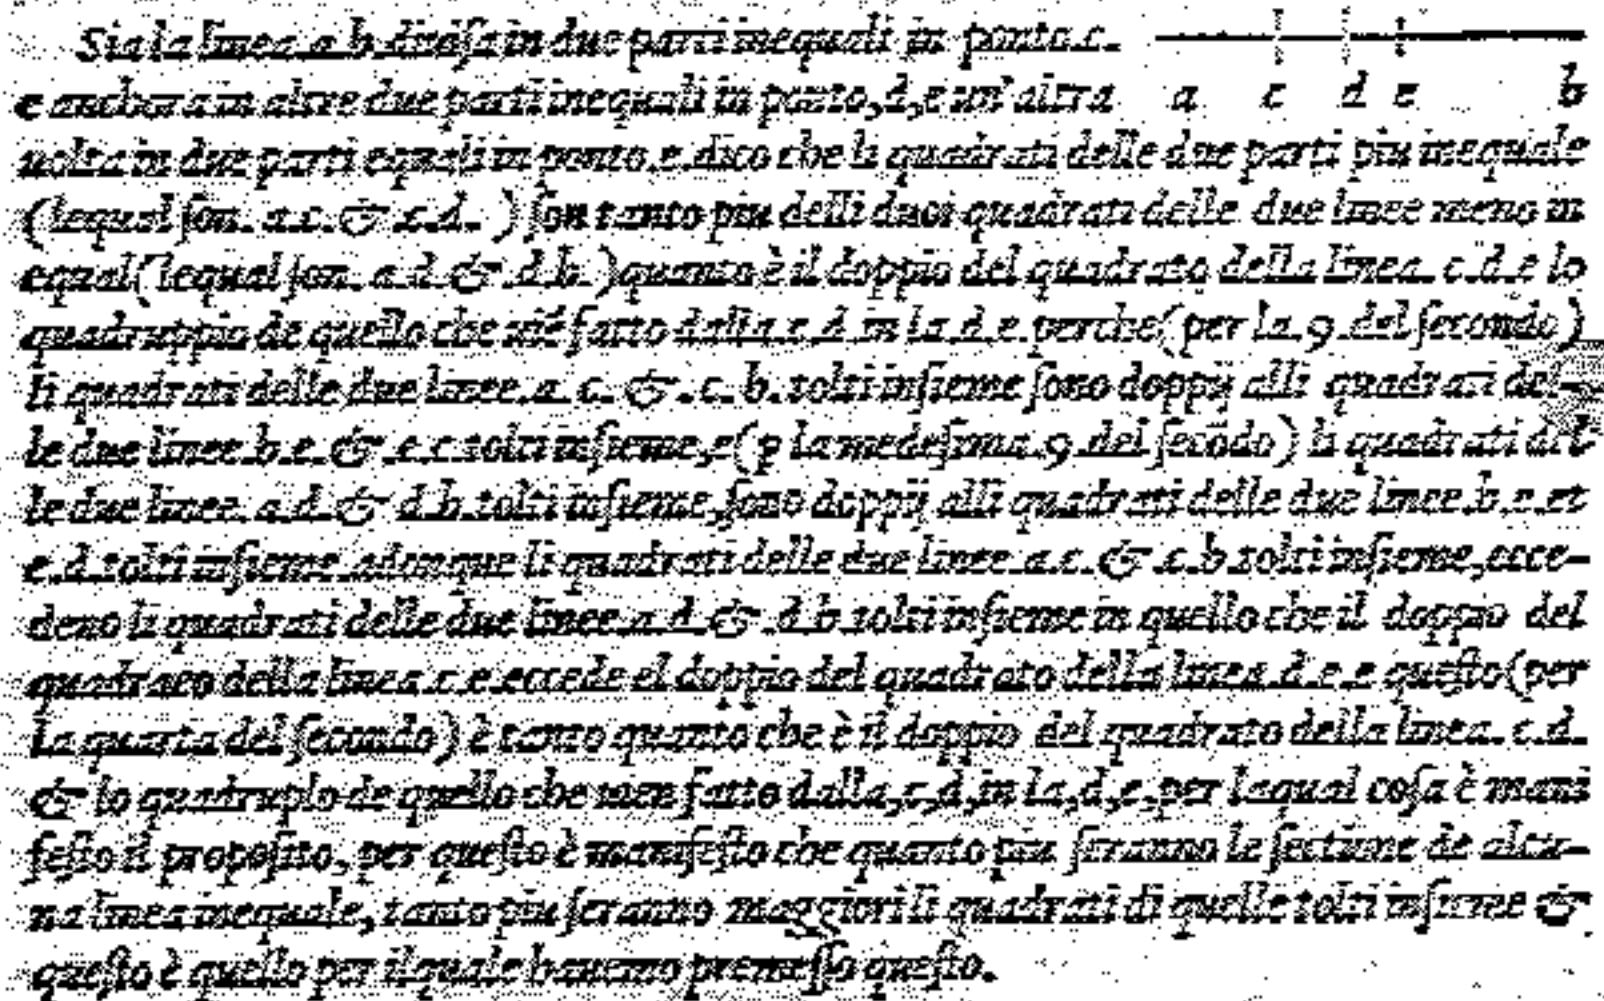 Sia la linea.a.b.diuisa in due parti inequali in ponto.c.
e anchora in altre due parti inequali in ponto,d,e un'altra
a c d e b
uolta in due parti equali in ponto.e.dico che li quadrati delle due parti piu inequale
(lequal son. a.c.& c.d. ) son tanto piu delli duoi quadrati delle due linee meno in
equal(lequal son. a.d.& .d.b.)quanto è il doppio del quadrato della linea. c.d.e lo
quadruppio de quello che uiē fatto dalla.c.d.in la.d.e.perche(per la.9.del secondo)
li quadrati delle due linee.a.c.&.c.b.tolti insieme sono doppij alli quadrati del-
le due linee.b.e.& .e.c.tolti insieme,e(p la medesima.9.del secōdo) li quadrati del
le due linee.a.d.& d.b.tolti insieme,sono doppij alli quadrati delle due linee.b.e.et
e.d.tolti insieme.adonque li quadrati delle due linee.a.c.& .c.b.tolti insieme,ecce-
deno li quadrati delle due linee.a.d.& .d.b.tolti insieme in quello che il doppio del
quadrato della linea.c.e.eccede el doppio del quadrato della linea.d.e.e questo(per
la quarta del secondo)è tanto quanto che è il doppio del quadrato della linea.c.d.
& lo quadruplo de quello che uien fatto dalla,c,d,in la,d,e,per laqual cosa è mani
festo il proposito, per questo è manifesto che quanto piu seranno le settione de alcu-
na linea inequale, tanto piu seranno maggiori li quadrati di quelle tolti insieme &
questo è quello per il quale hauemo premesso questo.